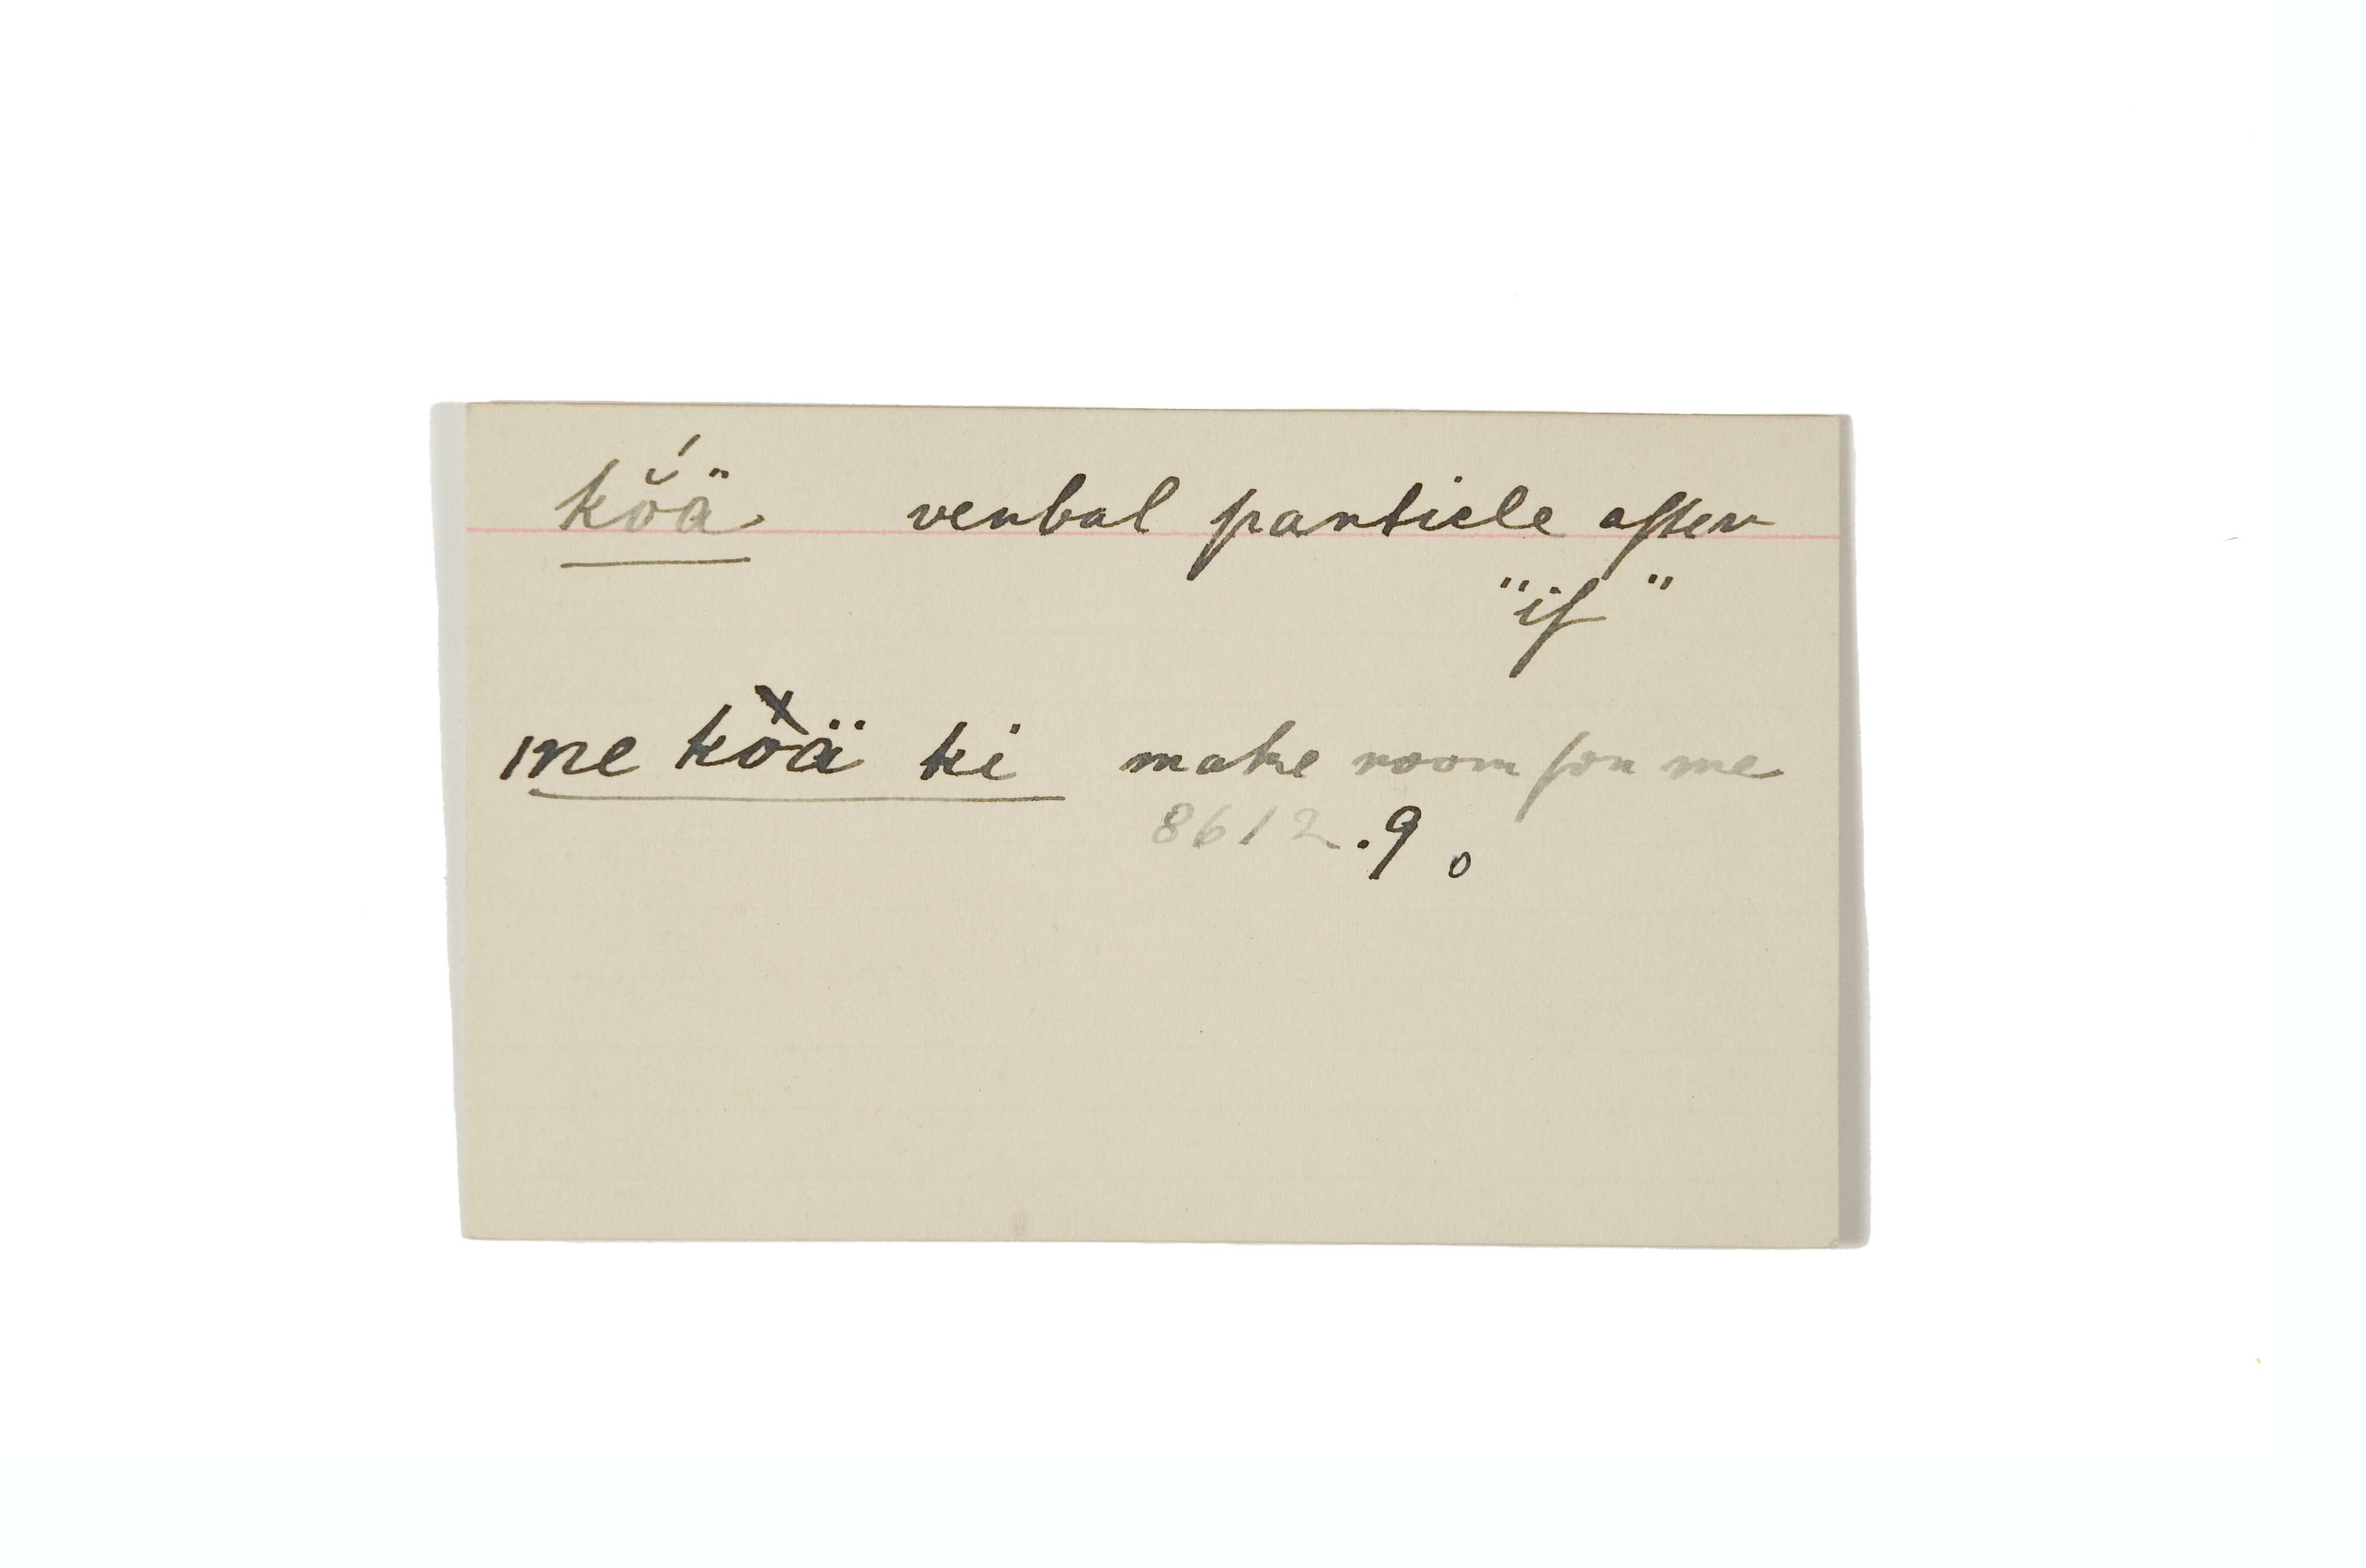 kŏ́ä verbal particle after
"if"
me köä ki make room for me
8612.9.